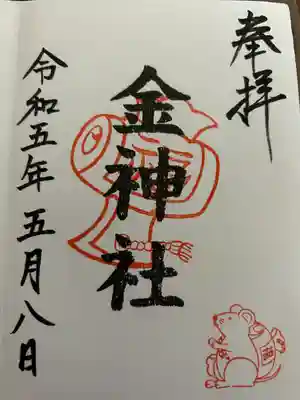 奉拝
金神社
令和五年五月八日